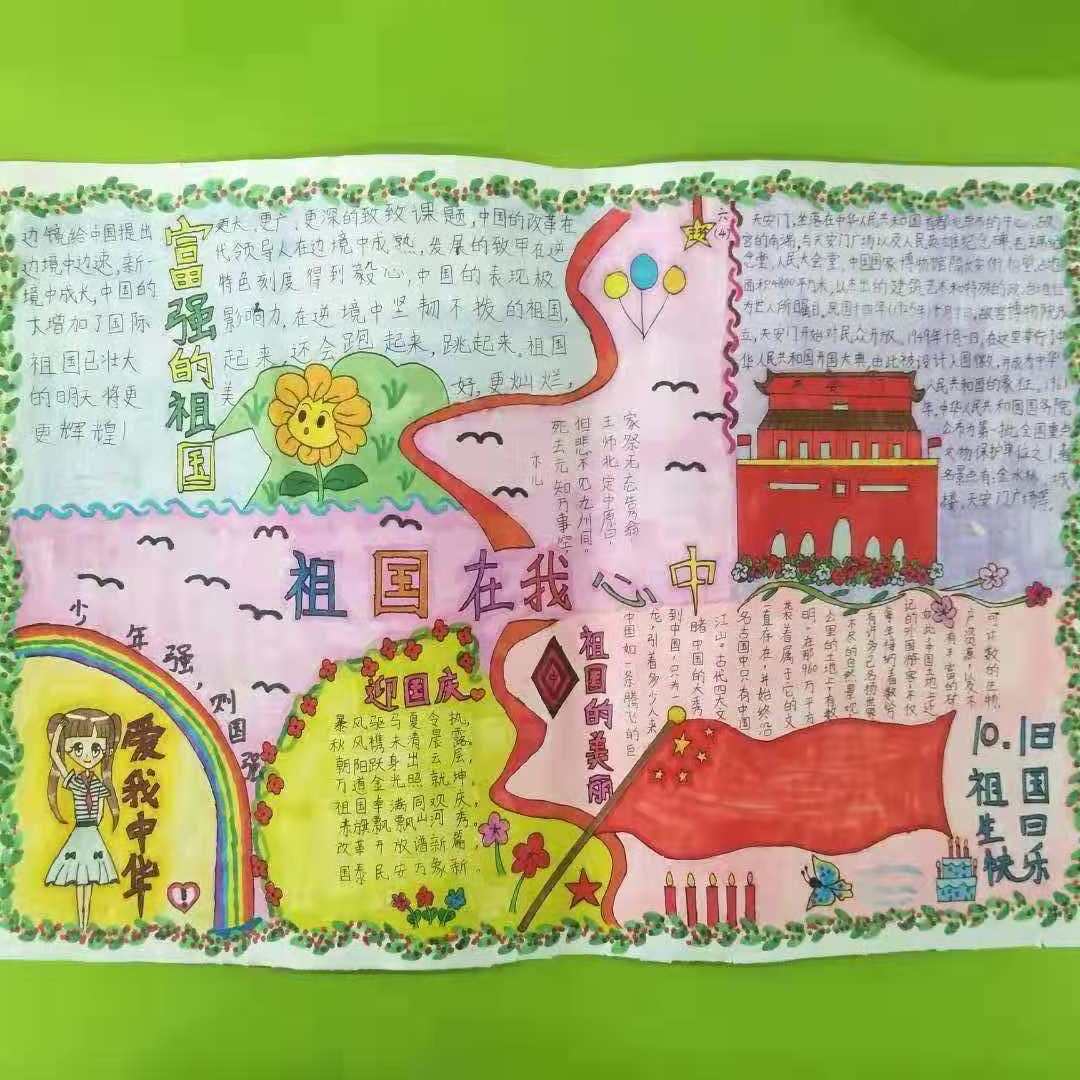 富强的祖国
边镜给中国提出
边境中边速,新
境中成长,中国的
大增加了国际
祖国已壮大
的明天将更
更辉煌!
更大、更广、更深的致致课题,中国的改革在
代领导人在边境中成熟,发展的致甲在逆
特色刻度得到毅心,中国的表现极
影响力,在逆境中坚韧不拨的祖国,
起来,还会跑起来,跳起来。祖国
美
好,更灿烂,
六(4)
天安门,坐落在中华人民共和国首都北京市的中心,故
宫的南端,与天安门广场以及人民英雄纪念碑、毛主席纪
念堂,人民大会堂,中国国家博物馆隔长安街相望,占地
面积4800平方米,以杰出的建筑艺术和特殊的政治地位
为世人所瞩目,民国十四年(1925年)十月十日,故宫博物院成
立,天安门开始对民众开放,1949年十月一日,在这里举行了中
华人民共和国开国大典,由此被设计入国徽,并成为中华
人民共和国的象征,1961
年,中华人民共和国国务院
公布为第一批全国重点
文物保护单位之一,著
名景点有:金水桥、城
楼、天安门广场等。
天安
示儿
死去元知万事空,
但悲不见九州同。
王师北定中原日,
家祭无忘告乃翁
祖国在我心中
少年强,则国强
爱我中华
迎国庆
暴风驱马夏令执,
秋风携来清晨露。
朝阳跃身出云层,
万道金光照就坤。
祖国幸满同欢庆,
赤旗飘飘山河秀。
改革开放谱新篇,
国泰民安万象新。
祖国的美丽
中国如一条腾飞的巨
龙,引着多少人来
到中国,只为一
睹中国的大秀
江山。古代四大文
名古国中只有中国
一直存在,并始终沿
袭着属于它的文
明。在那960万平方
公里的土地上,有数
不尽的自然景观,
有许多已名扬世界,
每年接纳着数以
记的外国游客,不仅
如此,中国大地上还
有丰富的矿
产资源,以及不
可计数的生物,
10.1日
祖国生日快乐